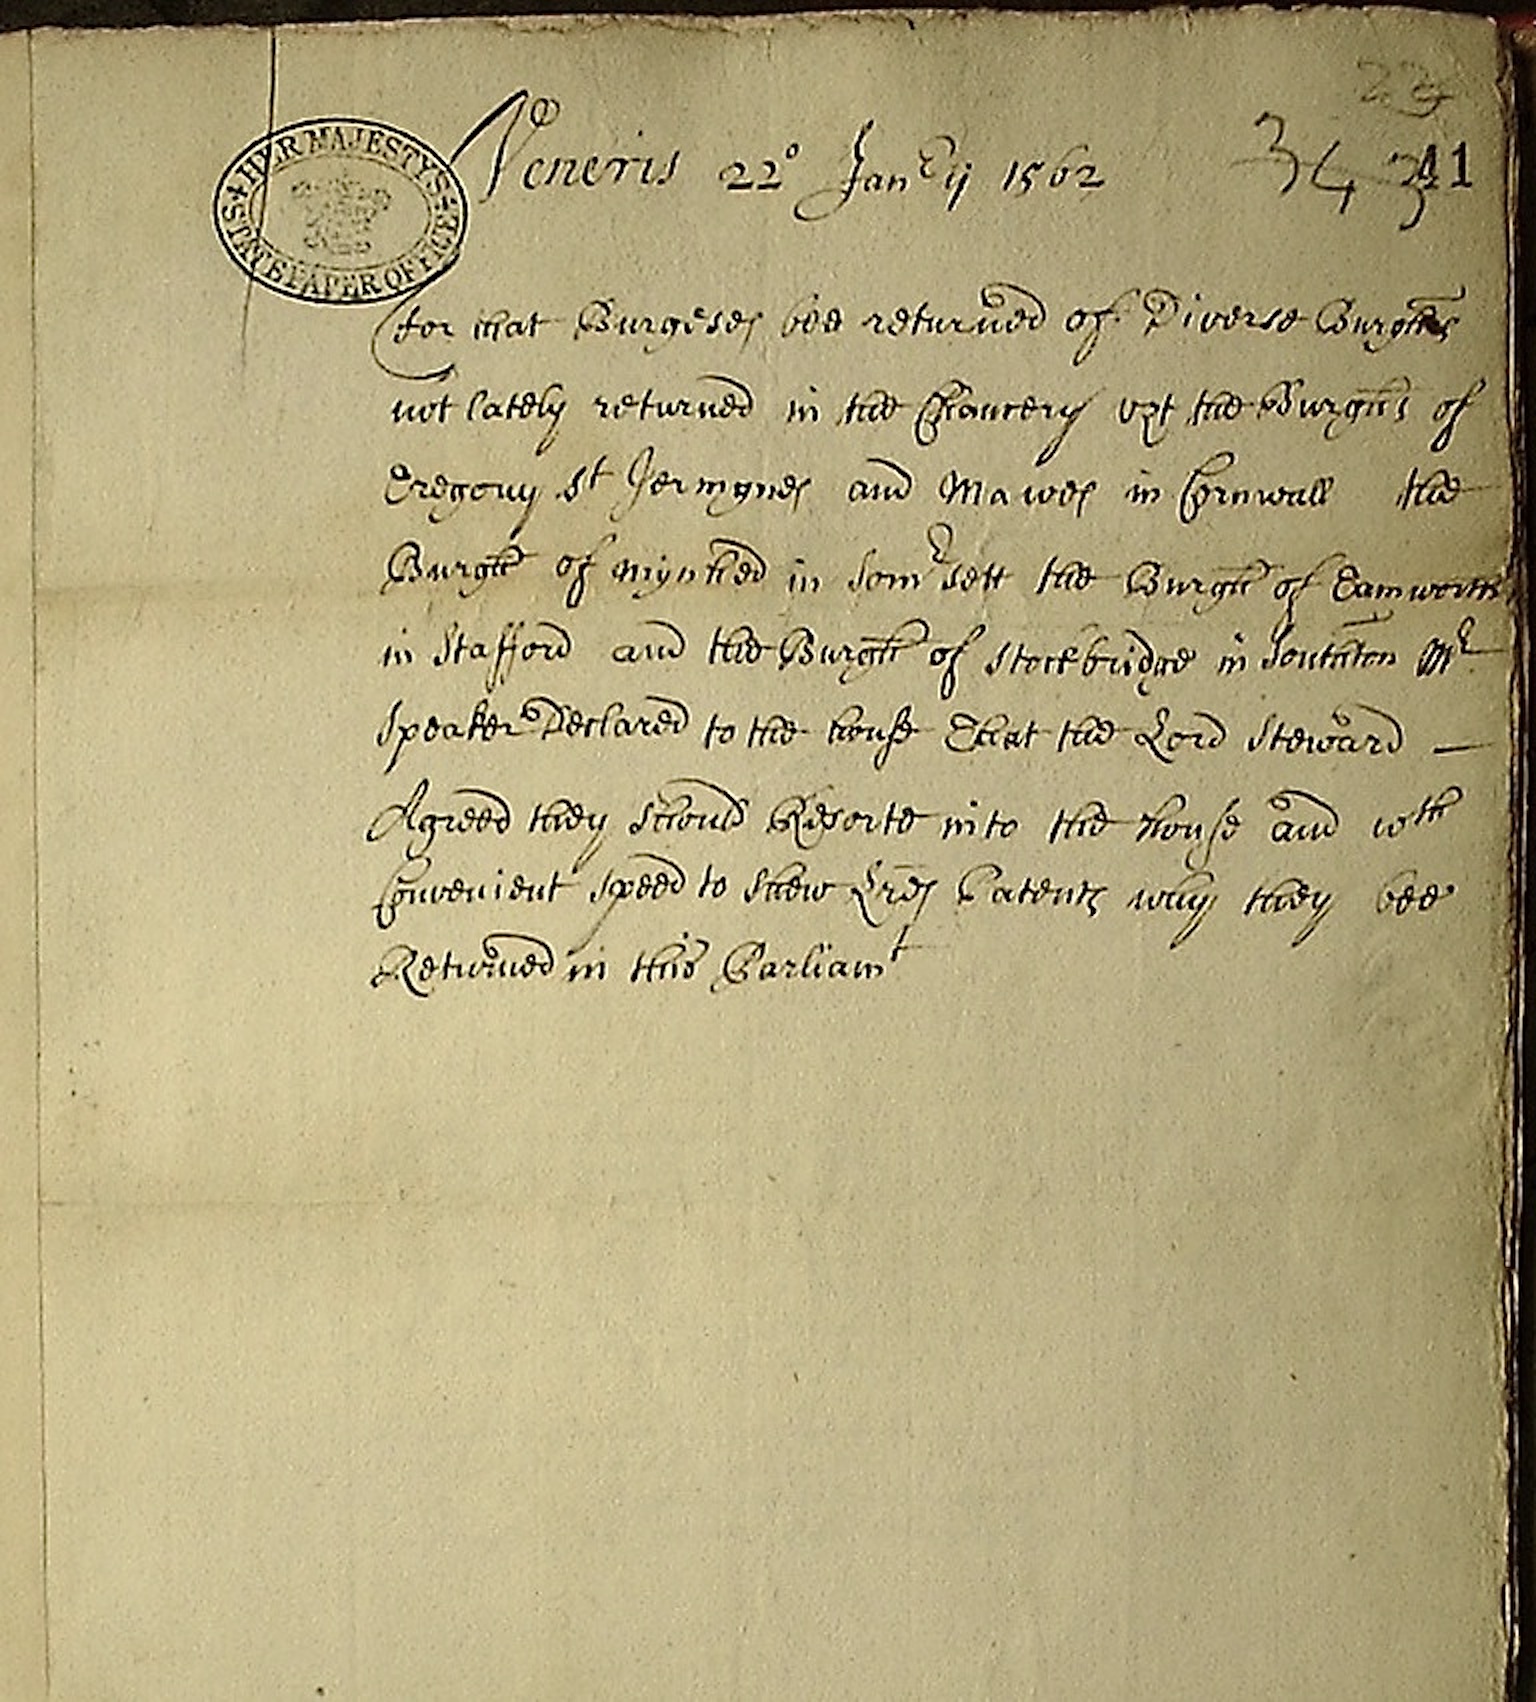 Veneris 22° Janry 1562
HER MAJESTYS STATE PAPER OFFICE
41
for that Burgeses bee returned of Diverse Burghes
not lately returned in the Chancery vzt the Burghs of
Tregony St Jermynes and Mawes in Cornwall the
Burgh of Mynhed in Somrsett the Burgh of Tamworth
in Stafford and the Burgh of Stockbridge in Southton Mr
Speaker Declared to the house That the Lord Steward —
Agreed they should Resorte into the house and wth
Convenient speed to shew Lres Patents why they bee
Returned in this Parliamt